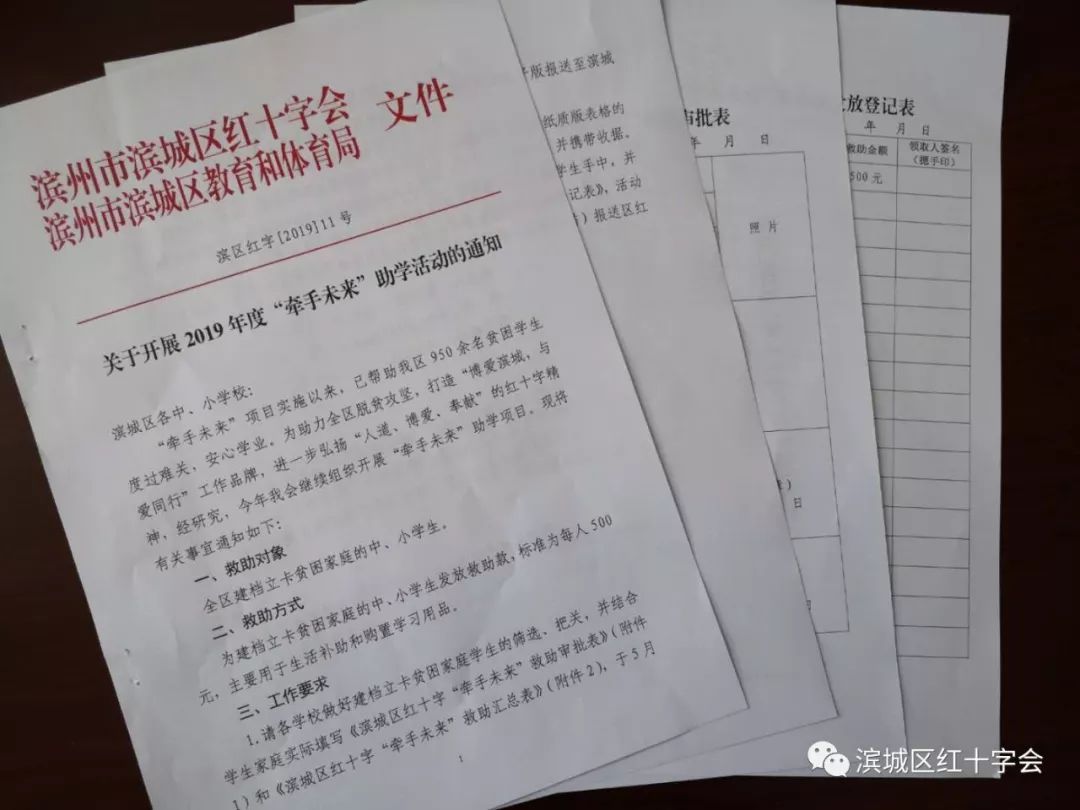 滨州市滨城区红十字会
滨州市滨城区教育和体育局
文件
滨区红字[2019]11号
关于开展2019年度“牵手未来”助学活动的通知
滨城区各中、小学校：
“牵手未来”项目实施以来，已帮助我区950余名贫困学生
度过难关，安心学业。为助力全区脱贫攻坚，打造“博爱滨城，与
爱同行”工作品牌，进一步弘扬“人道、博爱、奉献”的红十字精
神，经研究，今年我会继续组织开展“牵手未来”助学项目。现将
有关事宜通知如下：
一、救助对象
全区建档立卡贫困家庭的中、小学生。
二、救助方式
为建档立卡贫困家庭的中、小学生发放救助款，标准为每人500
元，主要用于生活补助和购置学习用品。
三、工作要求
1.请各学校做好建档立卡贫困家庭学生的筛选、把关，并结合
学生家庭实际填写《滨城区红十字“牵手未来”救助审批表》（附件
1）和《滨城区红十字“牵手未来”救助汇总表》（附件2），于5月
1
版报送至滨城
纸质版表格的
并携带收据。
学生手中，并
记表》，活动
）报送区红
审批表
月 日
照片
）
日
放登记表
年 月 日
救助金额
领取人签名
（摁手印）
500元
滨城区红十字会